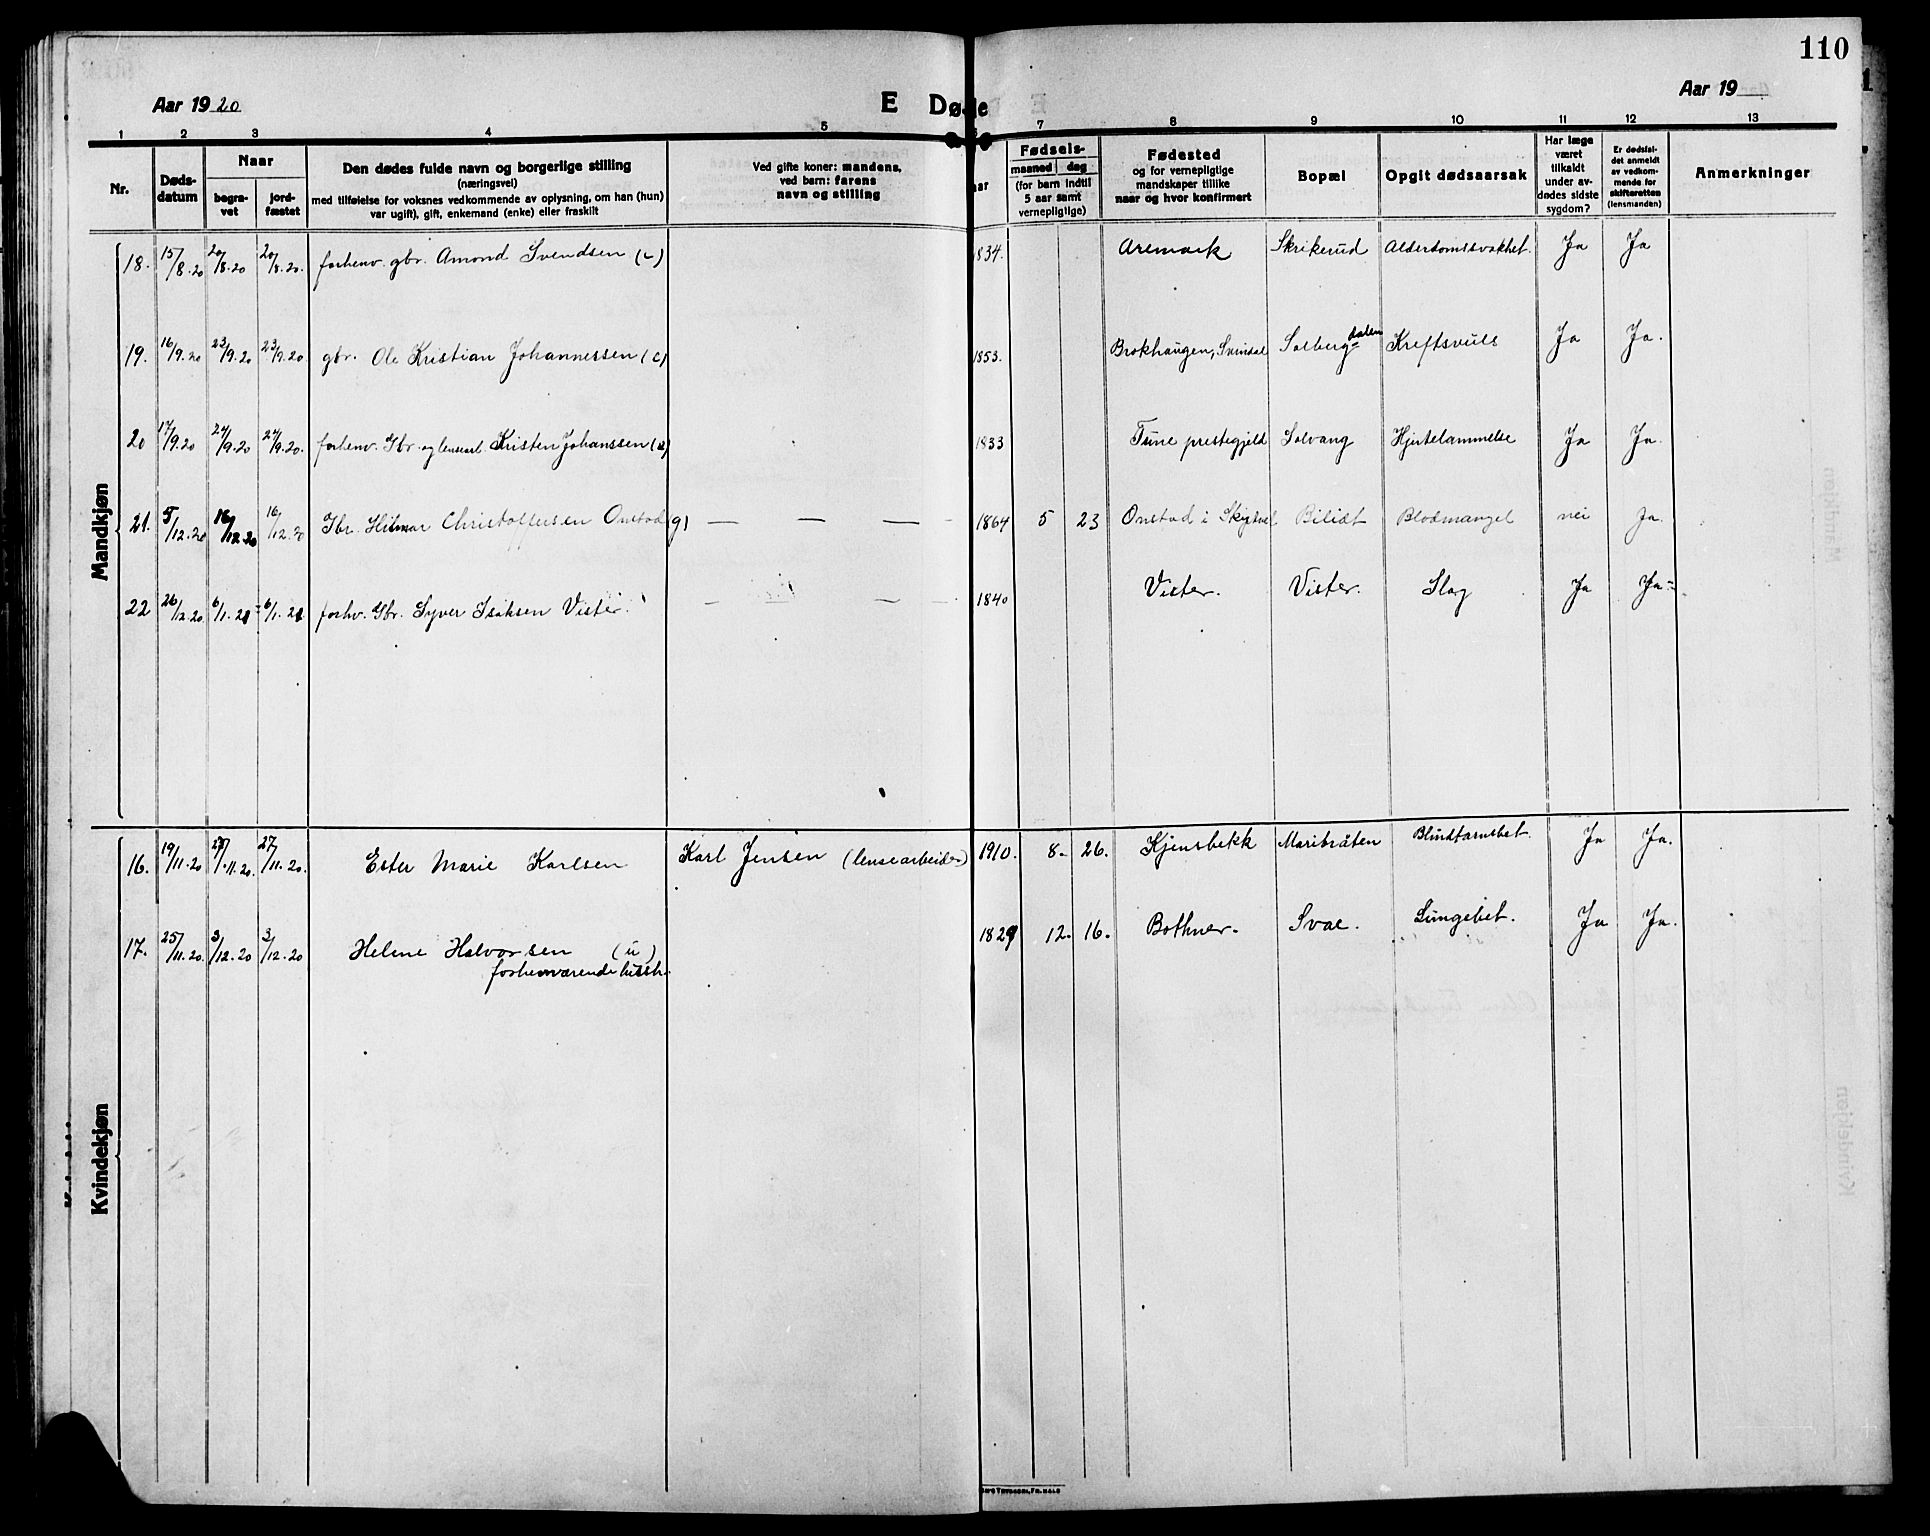 110
Aar 1920
E Døde
Aar 19
1 2 3 4 5 6 7 8 9 10 11 12 13
Nr.
Døds-
datum
Naar
begra-
vet
jord-
fæstet
Den dødes fulde navn og borgerlige stilling
(næringsvei)
med tilføielse for voksnes vedkommende av oplysning, om han (hun)
var ugift), gift, enkemand (enke) eller fraskilt
Ved gifte koner: mandens,
ved barn: farens
navn og stilling
aar
Fødsels-
maaned dag
(for barn indtil
5 aar samt
vernepligtige)
Fødested
og for vernepligtige
mandskaper tillike
naar og hvor konfirmert
Bopæl
Opgit dødsaarsak
Har læge
været
tilkaldt
under av-
dødes sidste
sygdom?
Er dødsfal-
det anmeldt
av vedkom-
mende for
skifteretten
(lensmanden)
Anmerkninger
Mandkjøn
18. 15/8.20 20/8.20 20/8.20. forhenv. gbr. Amond Svendsen 1834. Aremark Skrikerud Alderdomssvakhet. Ja Ja
19. 16/9.20 23/9.20 23/9.20. gbr. Ole Kristian Johannessen 1853. Brokhaugen, Svindal Solbergdalen Kreftsvuls Ja Ja.
20 17/9.20 24/9.20 24/9.20. forhenv. Gbr. og lensearb. Kristen Johanssen 1833 Tune prestegjeld Solvang Hjertelammelse Ja Ja.
21. 5/12.20 16/12.20 16/12.20 Gbr. Hilmar Christoffersen Onstad (g) — — — 1864 5 23 Onstad i Skiptvet Bilidt Blodmangel nei Ja.
22 26/12.20 6/1.21 6/1.21 forhv. Gbr. Syver Isaksen Vister. — — — 1840 Vister. Vister. Slag Ja Ja
Kvindekjøn
16. 19/11.20 27/11.20. 27/11.20. Ester Marie Karlsen Karl Jensen (lensearbeider) 1910. 8. 26. Kjensbekk Maribråten Blindtarmsbet. Ja Ja.
17. 25/11.20. 3/12.20 3/12.20 Helene Halvorsen (u) 1829 12. 16. Bothner. Svae. Lungebet. Ja Ja.
forhenværende hussh.